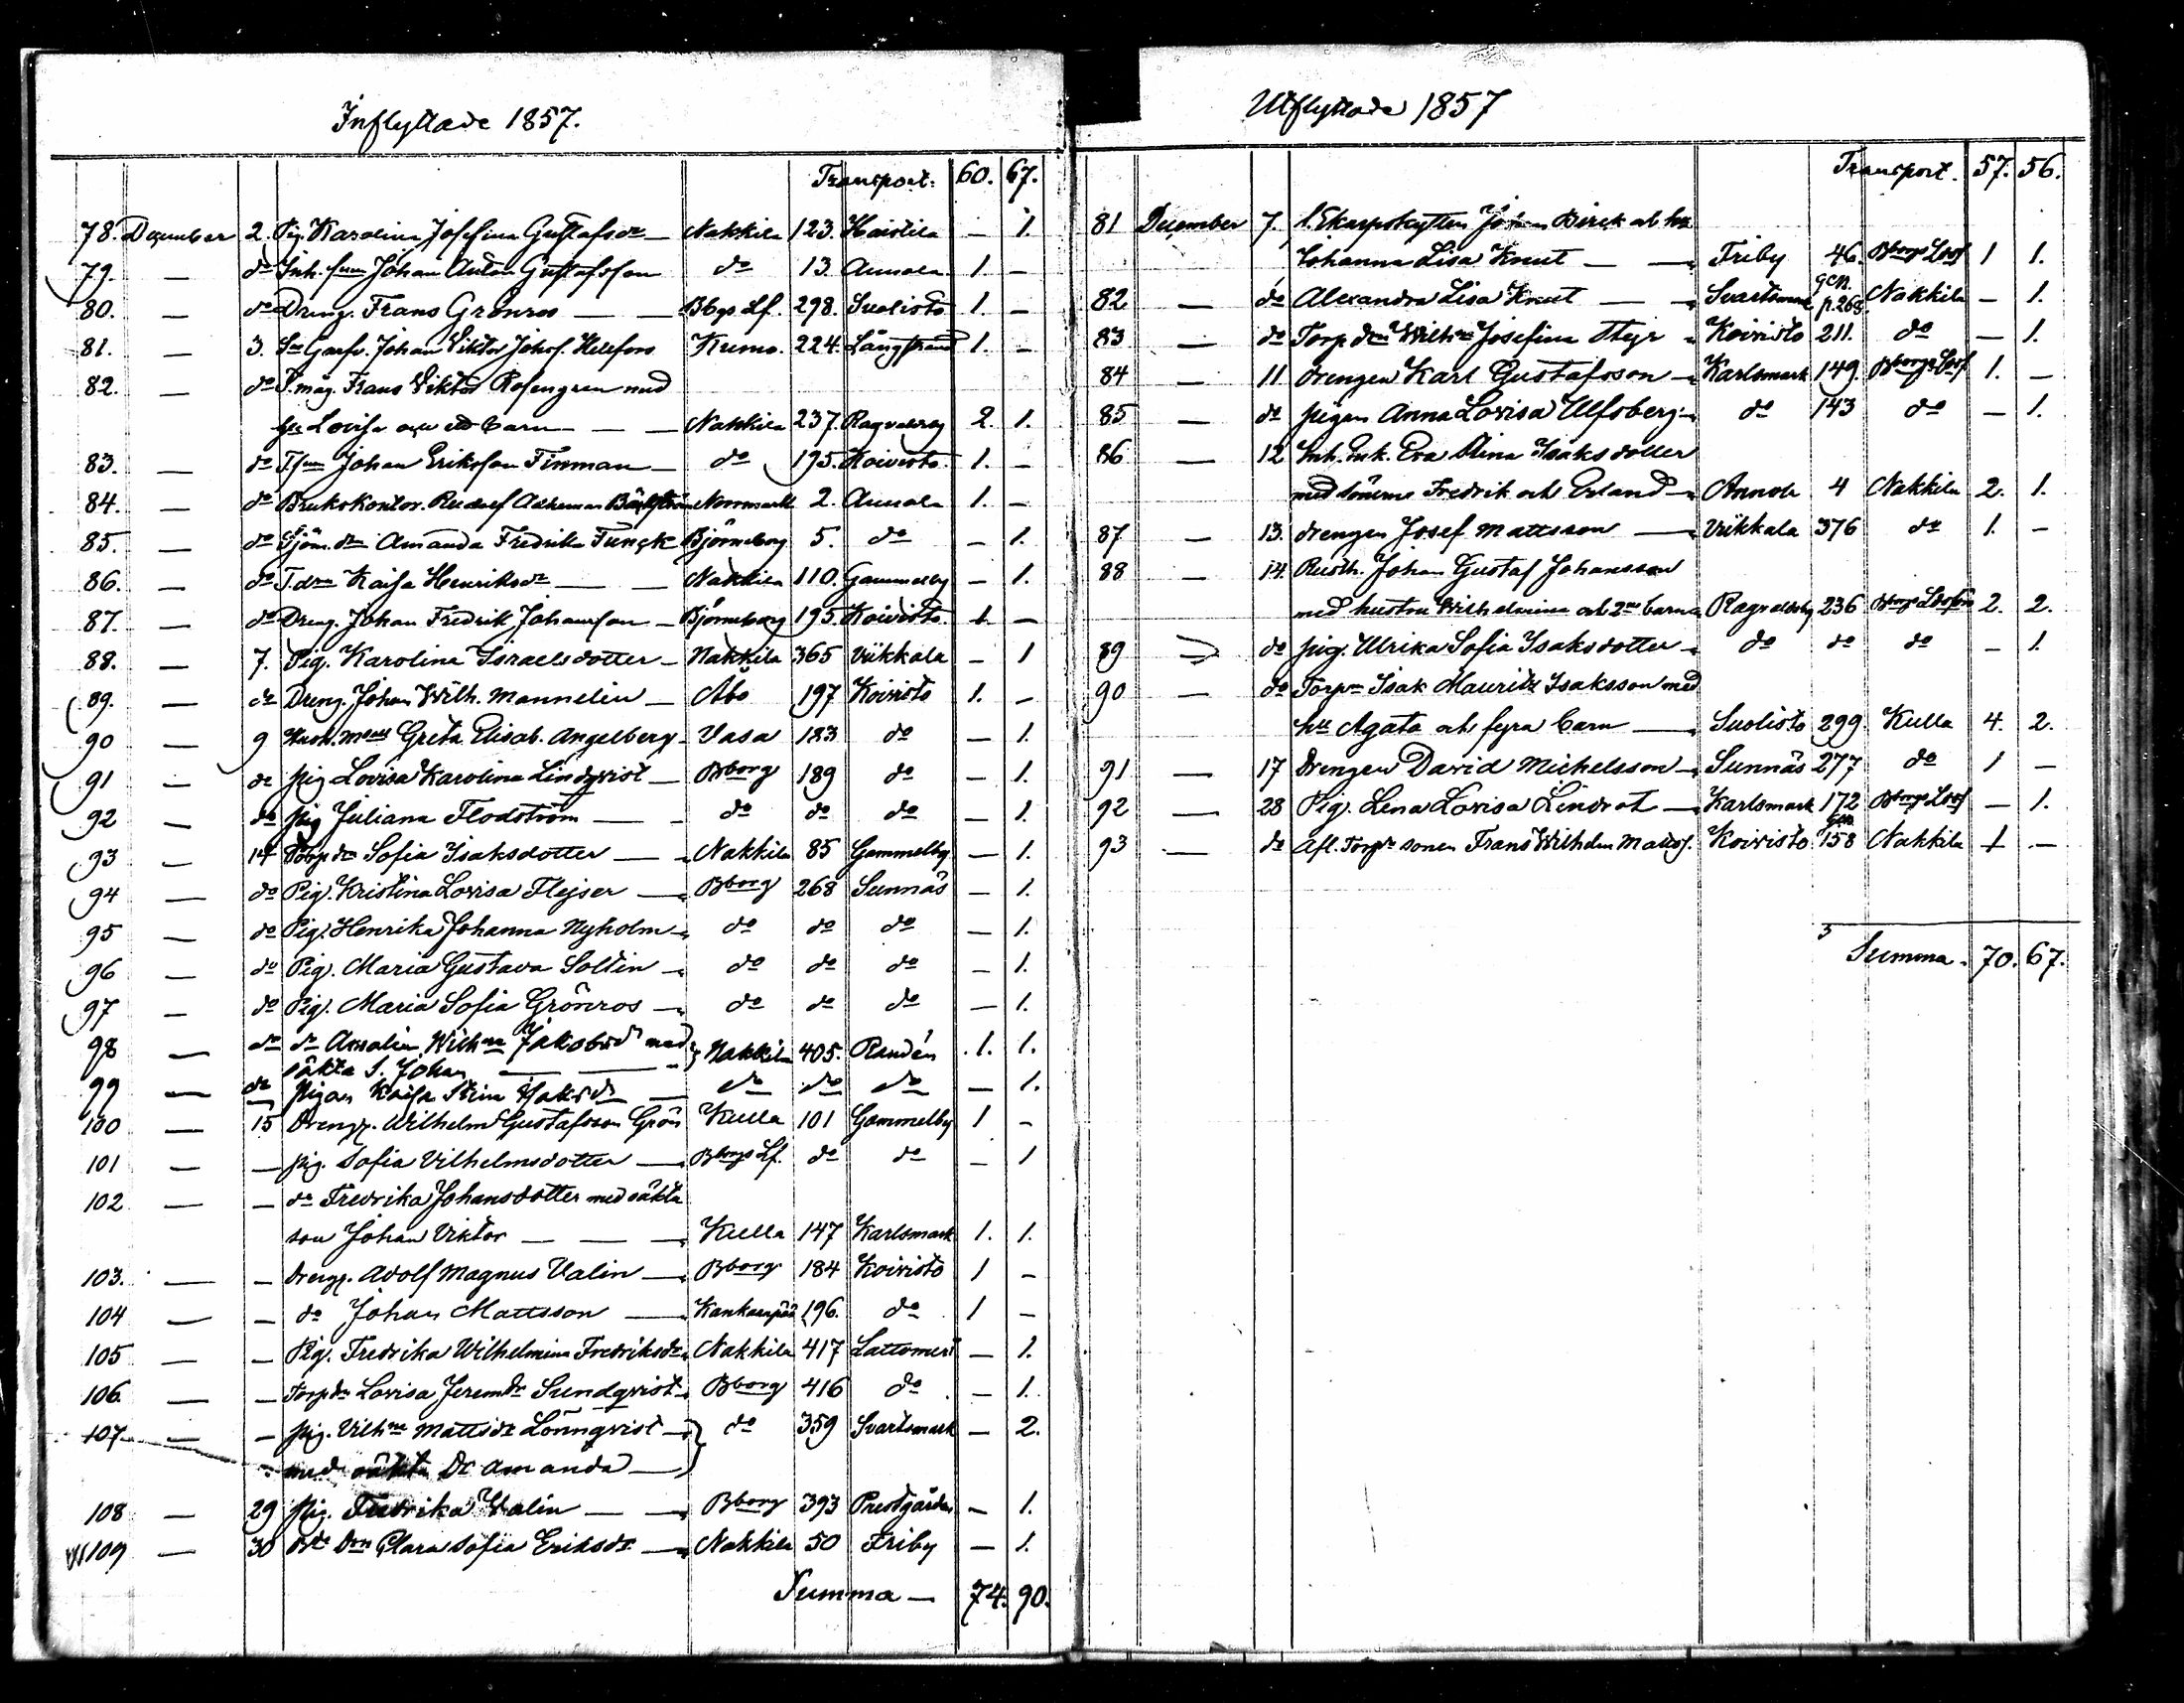 Inflyttade 1857.
Transport. 60. 67.
78. December 2. Pig. Karolina Josefina Gustafsdr — Nakkila 123. Haistila — 1.
79. — do Inh. Johan Anton Gustafsson do 13. Annola 1. —
80. — do Dreng. Frans Grönros — — Bbgs Lf. 298. Suolisto 1. —
81. — 3. Garfv. Johan Viktor Johsf. Helefors Kumo. 224. Långstrand 1. —
82. — do T. måg. Frans Viktor Rosengren med
hu Lovisa och ett barn — — Nakkila 237. Ragvaldsby 2. 1.
83. — do Johan Eriksson Finman — do 195. Koivisto. 1. —
84. — do Brukskontor. Rudolf Norrmark 2. Annola 1. —
85. — do Sjöm. dr Amanda Fredrika Funck Björneborg 5. do — 1.
86. — do T. dr Kaisa Henriksdr — — Nakkila 110. Gammelby — 1.
87. — do Dreng. Johan Fredrik Johansson — Björneborg 195. Koivisto. 1. —
88. — 7. Pig. Karolina Israelsdotter — Nakkila 365 Viikkala — 1
89. — do Dreng. Johan Wilh. Mannelin — Åbo 197 Koivisto 1. —
90 — 9 Greta Elisab. Angelberg — Vasa 183 do — 1.
91 — do pig Lovisa Karolina Lindqvist — Bborg 189 do — 1.
92 — do pig Juliana Flodström — — do do do — 1.
93 — 14 Torp dr Sofia Isaksdotter — Nakkila 85 Gammelby — 1.
94 — do Pig. Kristina Lovisa Flejser — Bborg 268 Sunnäs — 1.
95 — do Pig. Henrika Johanna Nyholm — do do do — 1.
96 — do Pig. Maria Gustava Soldin — do do do — 1.
97 — do Pig. Maria Sofia Grönros — do do do — 1.
98 — do do Amalia Wilhna Jakobsdr med Nakkila 405. Randén 1. 1.
oäkta S. Johan — —
99 — do pigan Kaisa Stina Isaksdr — do do do — 1.
100 — 15 Drengr. Wilhelm Gustafsson Grön Kulla 101 Gammelby 1 -
101 — — pig. Sofia Vilhelmsdotter — Bborgs Lf. do do — 1
102 — — do Fredrika Johansdotter med oäkta
son Johan Viktor — — Kulla 147 Karlsmark 1. 1.
103. — — drengr. Adolf Magnus Valin — Bborg 184 Koivisto 1 -
104 — — do Johan Mattsson — Kankaanpää 196. do 1 —
105 — — Pig. Fredrika Wilhelmina Fredriksdr Nakkila 417 Lattomeri — 1.
106. — — Torp dr Lovisa Jeremdr Sundqvist — Bborg 416 do — 1.
107 — — pig. Vilhna Mattsdr Lönnqvist — do 359 Svartsmark — 2.
med oäkta Dr Amanda —
108 — 29 pig. Fredrika Valin — — Bborg 393 Prestgården — 1.
109 — 30 Clara Sofia Eriksdr — Nakkila 50 Friby — 1.
Summa — 74. 90.
Utflyttade 1857
Transport. 57. 56.
81 December 7. f. Skarpskytten Johan Birck och hu
Johanna Lisa Knut — — Friby 46. Bborgs Lfs 1 1.
82 — do Alexandra Lisa Knut — — Svartsmark gen. p. 268. Nakkila — 1.
83 — do Torp drn Wilhna Josefina Stejr Koivisto 211. do — 1.
84 — 11 drengen Karl Gustafsson — Karlsmark 149. Bborgs Lfs 1. —
85 — do pigan Anna Lovisa Ulfsberg — do 143 do — 1.
86 — 12 Inh. Enk. Eva Stina Isaksdotter
med sönerne Fredrik och Erland — Annola 4 Nakkila 2. 1.
87 — 13. drengen Josef Mattsson — Viikkala 376 do 1. -
88 — 14. Rusth. Johan Gustaf Johansson
med hustru Wilhelmina och 2ne barn Ragvaldsby 236 Bborgs Lfs 2. 2.
89 — do pig. Ulrika Sofia Isaksdotter — do do do — 1.
90 — do Torpn Isak Mauritz Isaksson med
hu Agata och fyra barn — Suolisto 299. Kulla 4. 2.
91 — 17 Drengen David Michelsson — Sunnäs 277 do 1 —
92 — 28 Pig. Lena Lovisa Lindrot — Karlsmark 172 Bborgs Lfs — 1.
93 — do Afl. Torprs sonen Frans Wilhelm Mattsf. Koivisto gen. 158 Nakkila 1 —
Summa — 70. 67.